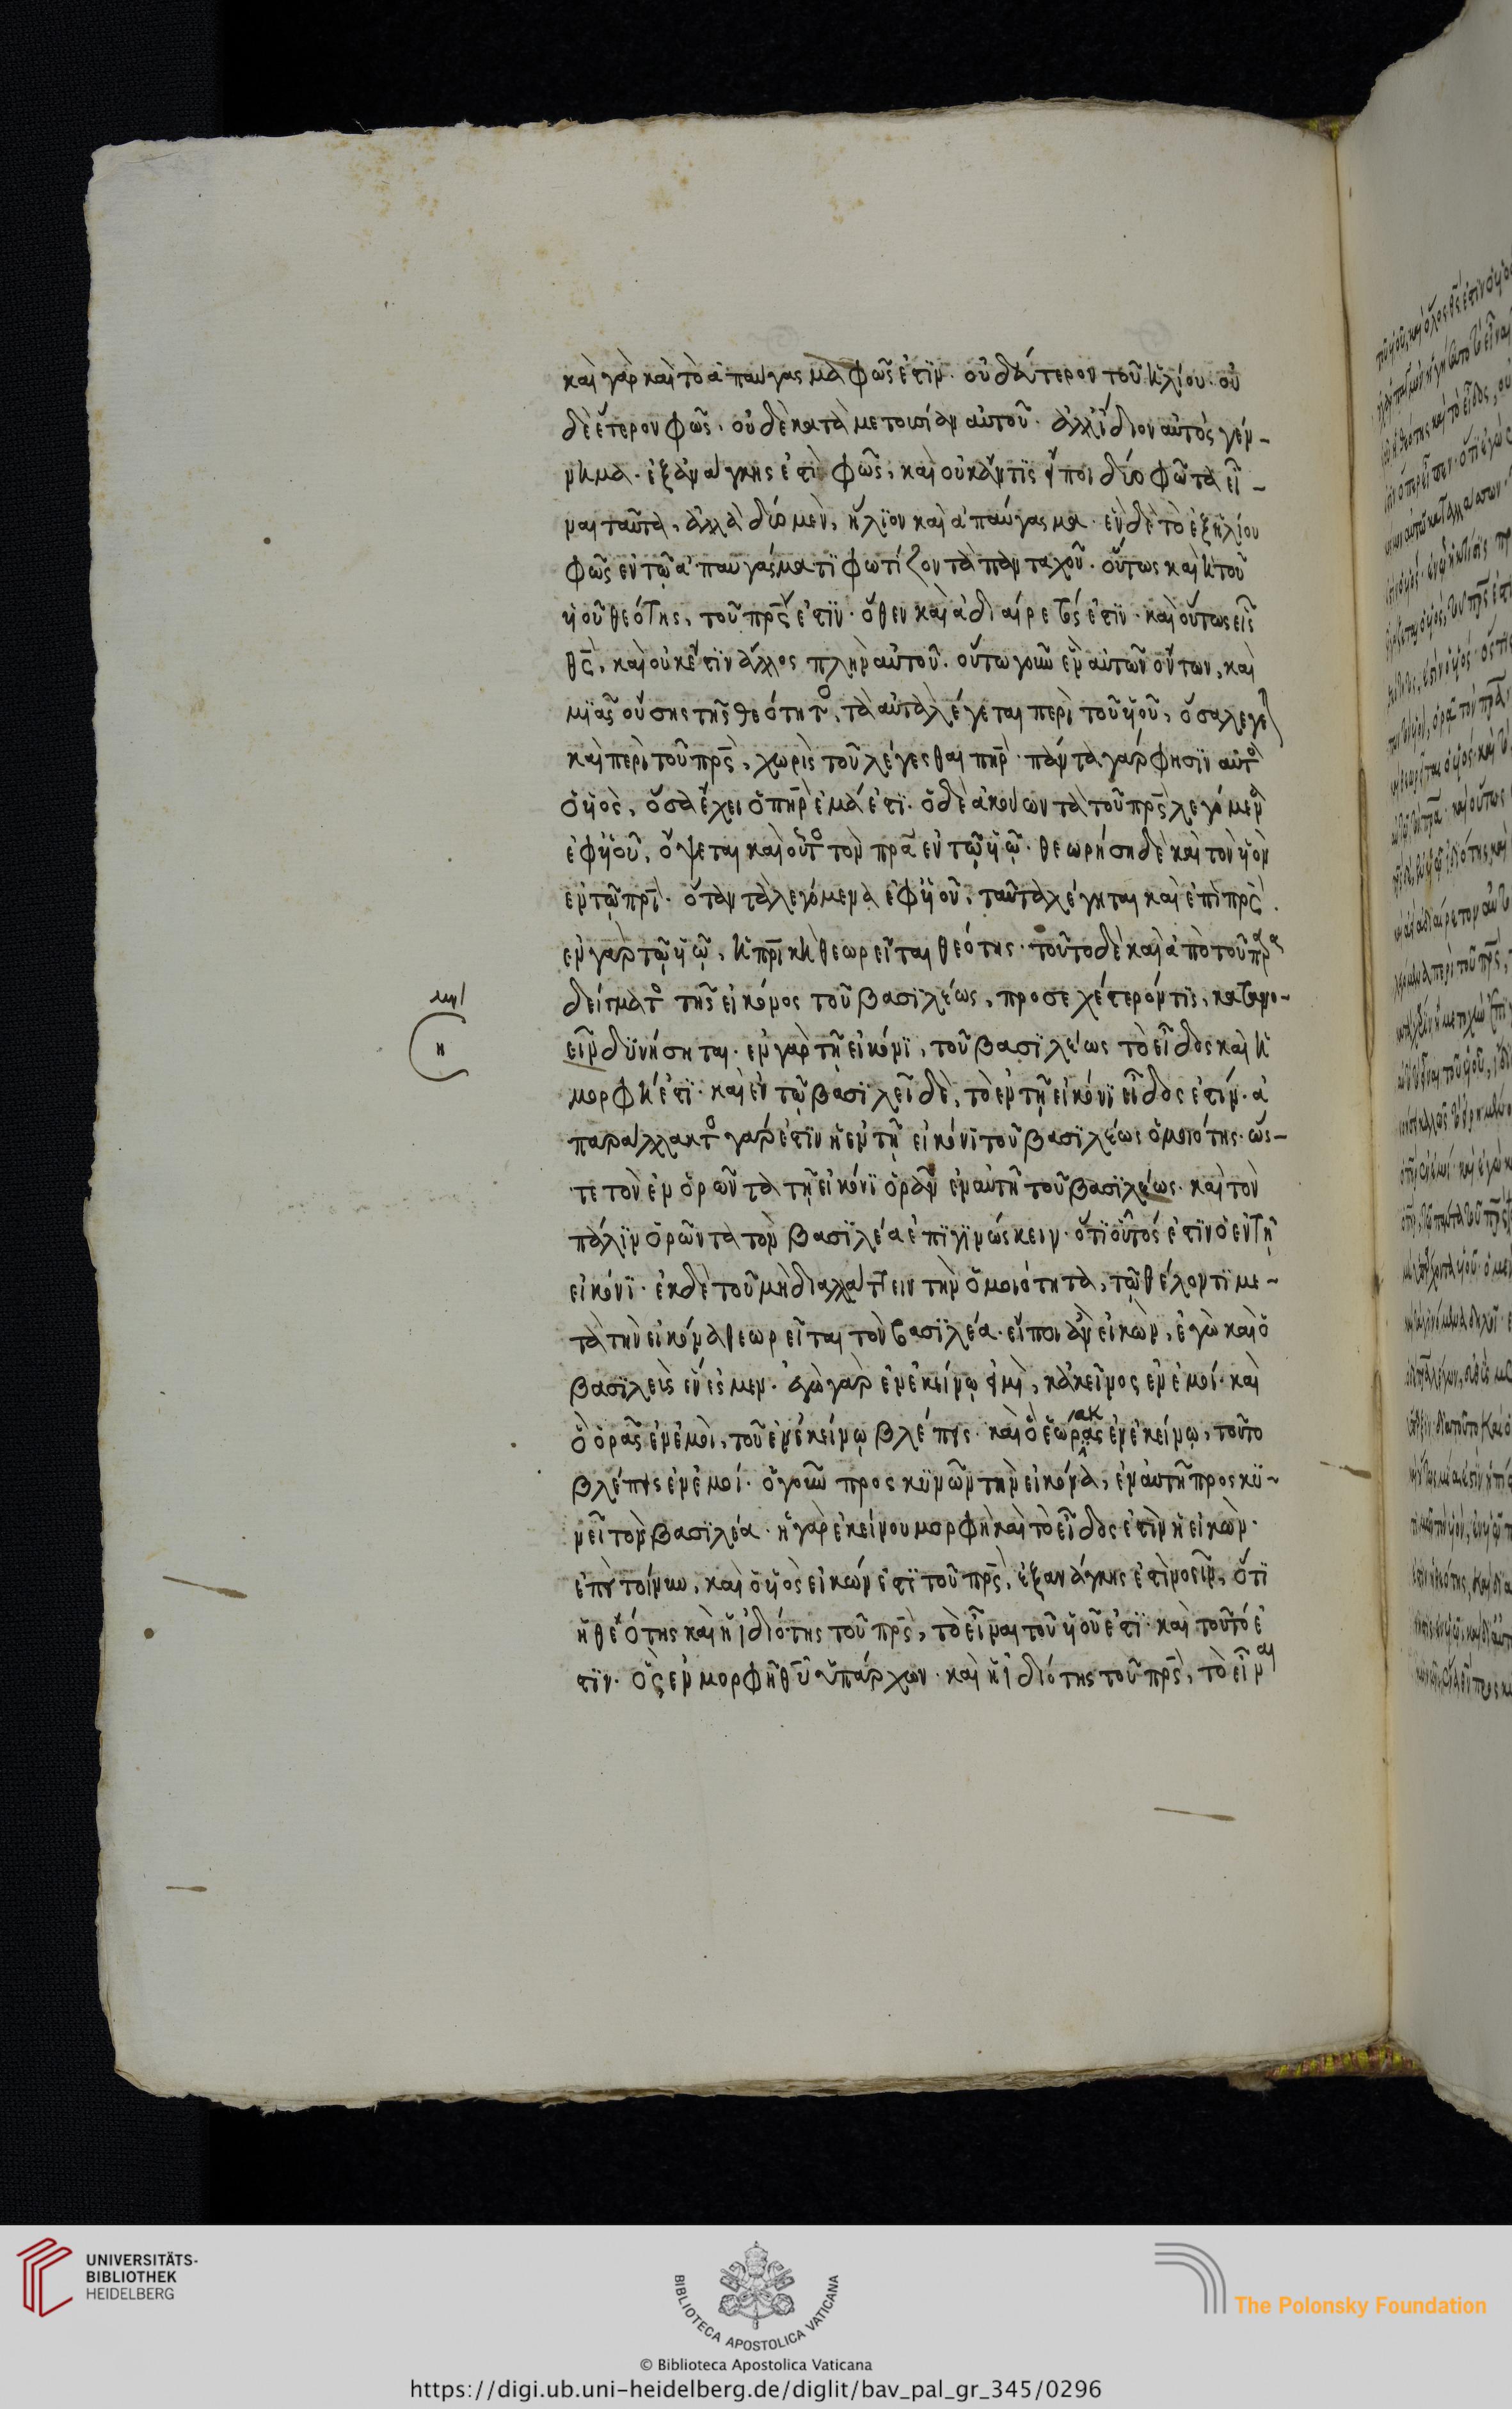 καὶ γὰρ καὶ τὸ ἀπαύγασμα φῶς ἐστϊν· οὐ δεύτερον τοῦ ἡλίου· οὐ
δὲ ἕτερον φῶς, οὐδὲ κατὰ μετουσίαν αὐτοῦ· ἀλλ' ἴδιον αὐτὸς γέν-
νημα· ἐξανάγκης ἐστὶ φῶς, καὶ οὐκ ἄν τϊς εἴποι δύο φῶτα εἶ-
ναι ταῦτα, ἀλλὰ δύο μὲν, ἥλϊον καὶ ἀπαύγασμα· ἓν δὲ τὸ ἐξ ἡλίου
φῶς ἐν τῷ ἀπαυγάσματϊ φωτίζον τὰ πανταχοῦ· οὕτως καὶ ἡ τοῦ
ὑϊοῦ θεότης, τοῦ πρς ἐστϊν· ὅθεν καὶ ἀδιαίρετός ἐστϊν· καὶ οὕτως εἷς
θς, καὶ οὐκ ἔστϊν ἄλλος πλὴν αὐτοῦ. οὕτω γοῦν ἓν αὐτῶν ὄντων, καὶ
μϊᾶς οὔσης τῆς θεότητο, τὰ αὐτὰ λέγεται περὶ τοῦ ὑϊοῦ, ὅσα λέγε
καὶ περὶ τοῦ πρς, χωρὶς τοῦ λέγεσθαι πηρ· πάντα γάρ φησϊν αὐτο
ὁ ὑϊὸς, ὅσα ἔχει ὁ πηρ ἐμά ἐστϊ· ὁ δὲ ἀκούων τὰ τοῦ πρς λεγόμεν
ἐφ ὑϊοῦ, ὄψεται καὶ οὕτο τὸν πρα ἐν τῷ ὑϊῷ· θεωρήση δὲ καὶ τὸν ὑϊὸν
ἐν τῷ πρι· ὅταν τὰ λεγόμενα ἐφ ὑϊοῦ, ταῦτα λέγηται καὶ ἐπὶ πρς.
ἐν γὰρ τῷ ὑϊῷ, ἡ πρικὴ θεωρεῖται θεότης· τοῦτο δὲ καὶ ἀπὸ τοῦ παρα
δείγματο τῆς εἰκόνος τοῦ βασϊλέως, προσεχέτερόν τϊς, κατανο-
εῖν δϋνήσηται· ἐν γὰρ τῇ εἰκόνϊ, τοῦ βασϊλέως τὸ εἶδος καὶ ἡ
μορφή ἐστϊ· καὶ ἐν τῷ βασϊλεῖ δὲ, τὸ ἐν τῇ εἰκόνϊ εἶδος ἐστίν· ἀ
παράλλακτο γάρ ἐστϊν ἡ ἐν τῇ εἰκόνϊ τοῦ βασϊλέως ὁμοιότης· ὥσ-
τε τὸν ἐνορῶντα τῇ εἰκόνϊ ὁρᾶν ἐν αὐτῇ τοῦ βασϊλέως· καὶ τὸν
πάλϊν ὁρῶντα τὸν βασϊλέα ἐπϊγϊνώσκειν· ὅτϊ οὗτός ἐστϊν ὁ ἐν τῇ
εἰκόνϊ· ἐκ δὲ τοῦ μὴ διαλλάττειν τὴν ὁμοιότητα, τῷ θέλοντϊ με-
τὰ τὴν εἰκόνα θεωρεῖται τὸν βασϊλέα· εἴποι ἂν ἡ εἰκὼν, ἐγὼ καὶ ὁ
βασϊλεὺς ἕν ἐσμεν· ἐγὼ γὰρ ἐν ἐκείνῳ εἰμὶ, κἀκεῖνος ἐν ἐμοί· καὶ
ὃ ὁρᾷς ἐν ἐμοὶ, τοῦ ἐν ἐκείνῳ βλέπεις· καὶ ὃ ἑώρακας ἐν ἐκείνῳ, τοῦτο
βλέπεις ἐν ἐμοί· ὁ γοῦν προσκϋνῶν τὴν εἰκόνα, ἐν αὐτῇ προσκϋ-
νεῖ τὸν βασϊλέα· ἡ γὰρ ἐκείνου μορφὴ καὶ τὸ εἶδος ἐστὶν ἡ εἰκών·
ἐπεὶ τοίνυν, καὶ ὁ ὑϊὸς εἰκών ἐστϊ τοῦ πρς, ἐξανάγκης ἐστὶ νοεῖν, ὅτϊ
ἡ θεότης καὶ ἡ ἰδιότης τοῦ πρς, τὸ εἶναι τοῦ ὑϊοῦ ἐστϊ· καὶ τοῦτό ἐ
στϊν· ὃς ἐν μορφῇ θυ ὑπάρχων· καὶ ἡ ἰδιότης τοῦ πρς, τὸ εἶναι
UNIVERSITÄTS-
BIBLIOTHEK
HEIDELBERG
BIBLIOTECA APOSTOLICA VATICANA
The Polonsky Foundation
© Biblioteca Apostolica Vaticana
https://digi.ub.uni-heidelberg.de/diglit/bav_pal_gr_345/0296